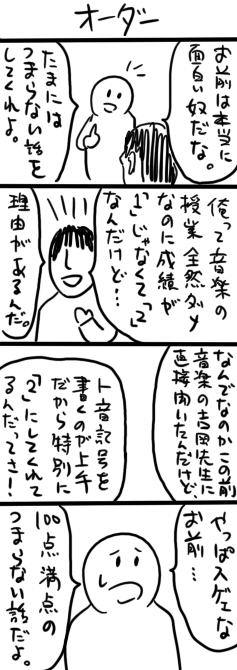 オーダー
お前は本当に
面白い奴だな。
たまには
つまらない話を
してくれよ。
俺って音楽の
授業全然ダメ
なのに成績が
「1」じゃなくて「2」
なんだけど…
理由があるんだ。
なんでなのかこの前
音楽の吉岡先生に
直接聞いたんだけど、
ト音記号を
書くのが上手
だから特別に
「2」にしてくれて
るんだってさ!
やっぱスゲェな
お前…
100点満点の
つまらない話だよ。